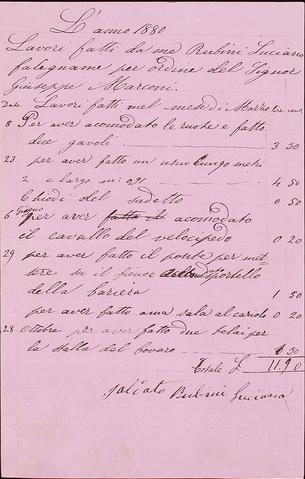 L'anno 1880
Lavori fatti da me Rubini Luciano
falegname per ordine del Signor
Giuseppe Marconi.
Date Lavori fatti nel mese di Marzo lire cent.
8 Per aver acomodato le ruote e fatto
due gavoli 3 50
23 per aver fatto un uscio Lungo metri
2 e largo m: 0,91 4 50
Chiodi del sudetto 0 50
6 Giugno per aver fatto il acomodato
il cavallo del velocipedo 0 20
29 per aver fatto il ponte per met
tere su il fieno sportello
della bariera 1 50
per aver fatto una sala al cariolo 0 20
28 Ottobre per aver fatto due telai per
la stalla del bovaro 1 50
Totale £ 11.90
Saldato Rubini Luciano